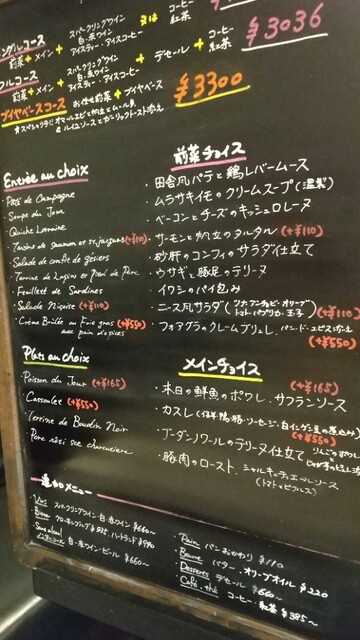 ングルコース
前菜 + メイン + スパークリングワイン
白・赤ワイン
アイスティー・アイスコーヒー
又は
コーヒー
紅茶
フルコース
前菜 + メイン + スパークリングワイン
白・赤ワイン
アイスティー・アイスコーヒー
+ デセール + コーヒー
紅茶
¥3036
ブイヤベースコース お任せ前菜 + ブイヤベース ¥3300
Entrée au choix
・Pâté de Campagne
・Soupe du Jour
・Quiche Lorraine
・Tartare de saumon et St. jacques (+¥110)
・Salade de confit de gésiers
・Terrine de Lapin et Pied de Porc
・Feuilleté de Sardines
・Salade Niçoise (+¥110)
・Crème Brûlée au Foie gras (+¥550)
avec pain d'épices
前菜チョイス
・田舎風パテと鶏レバームース
・ムラサキイモのクリームスープ(温製)
・ベーコンとチーズのキッシュロレーヌ
・サーモンと帆立のタルタル (+¥110)
・砂肝のコンフィのサラダ仕立て
・ウサギと豚足のテリーヌ
・イワシのパイ包み
・ニース風サラダ (ツナ・アンチョビ・オリーブ
トマト・パプリカ・玉子) (+¥110)
・フォアグラのクレームブリュレ、パン・ド・エピス添え
(+¥550)
Plats au choix
・Poisson du Jour (+¥165)
・Cassoulet (+¥550)
・Terrine de Boudin Noir
・Porc rôti sce charcutière
メインチョイス
(+¥165)
・本日の鮮魚のポワレ、サフランソース
・カスレ (仔羊・鴨・豚・ソーセージ・白インゲン豆の煮込み)
(+¥550)
・ブーダンノワールのテリーヌ仕立て
・豚肉のロースト、シャルキュティエールソース
(トマトとピクルス)
追加メニュー
・Vins スパークリングワイン・白・赤ワイン ¥660～
・Sans alcool 白・赤ワイン・ビール ¥660～
・Pain パンおかわり ¥110
・Beurre バター・オリーブオイル ¥220
・Desserts デセール ¥660～
・Café, thé コーヒー・紅茶 ¥385～